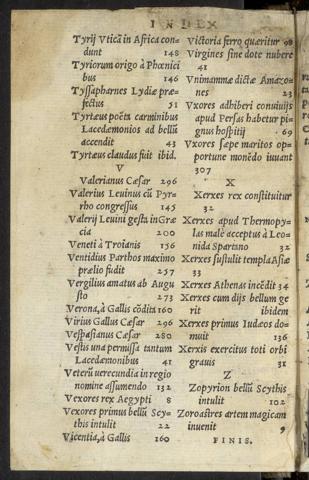 INDEX
Tyrij Vticā in Africa con-
dunt 148
Tyriorum origo à Phœnici
bus 146
Tyssapharnes Lydiæ præ-
fectus 51
Tyrtæus poëta carminibus
Lacedæmonios ad bellū
accendit 43
Tyrtæus claudus fuit ibid.
V
Valerianus Cæsar 296
Valerius Leuinus cū Pyr-
rho congressus 145
Valerij Leuini gesta in Græ
cia 200
Veneti à Troianis 156
Ventidius Parthos maximo
prælio fudit 257
Vergilius amatus ab Augu
sto 273
Verona, à Gallis cōdita 160
Virius Gallus Cæsar 296
Vespasianus Cæsar 280
Vestis una permissa tantum
Lacedæmonibus 41
Veterū uerecundia in regio
nomine assumendo 132
Vexores rex Aegypti 8
Vexores primus bellū Scy-
this intulit 22
Vicentia, à Gallis 160
Victoria ferro quæritur 98
Virgines sine dote nubere
41
Vnimammæ dictæ Amazo-
nes 23
Vxores adhiberi conuiuijs
apud Persas habetur pi-
gnus hospitij 69
Vxores sæpe maritos op-
portune monēdo iuuant
307
X
Xerxes rex constituitur
32
Xerxes apud Thermopy-
las malè acceptus à Leo-
nida Spartano 32
Xerxes sustulit templa Asiæ
33
Xerxes Athenas incēdit 34
Xerxes cum dijs bellum ge
rit ibidem
Xerxes primus Iudæos do-
muit 136
Xerxis exercitus toti orbi
grauis 31
Z
Zopyrion bellū Scythis
intulit 102
Zoroastres artem magicam
inuenit 9
FINIS.